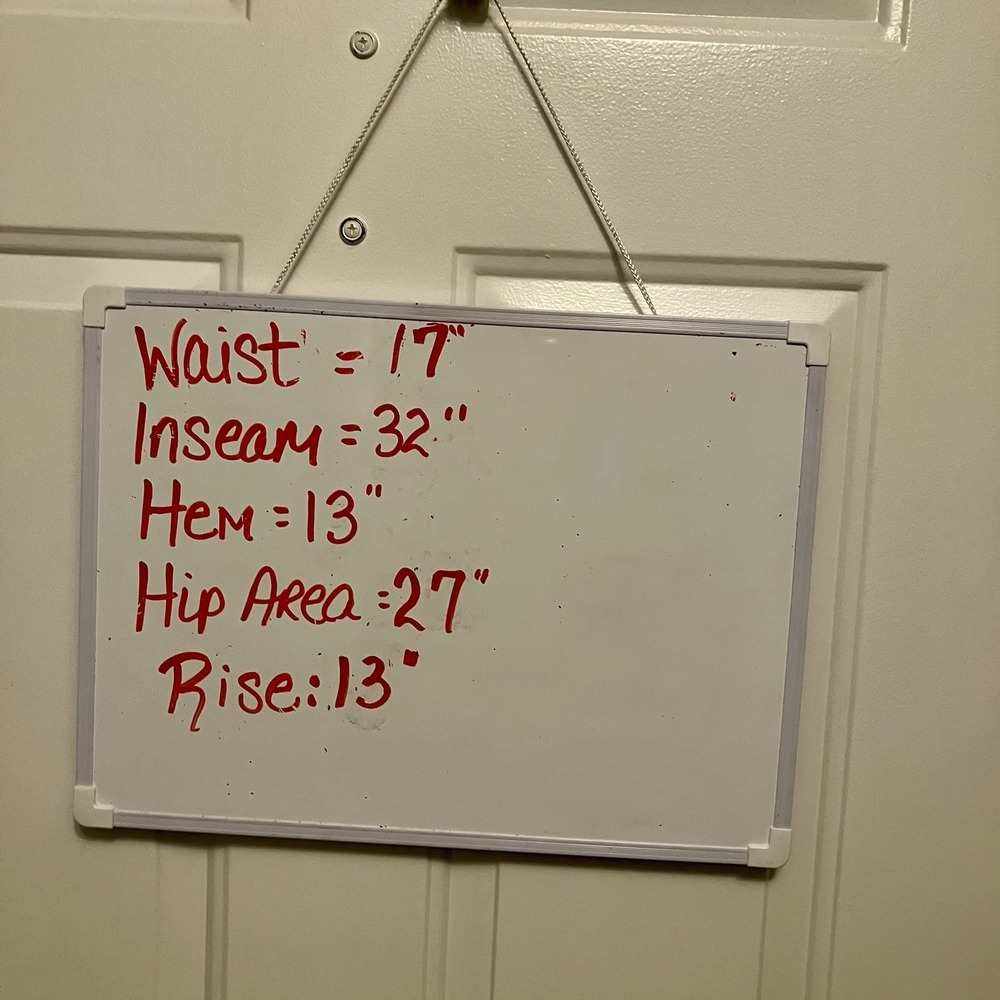 Waist = 17"
Inseam = 32"
Hem = 13"
Hip Area :27"
Rise: 13"